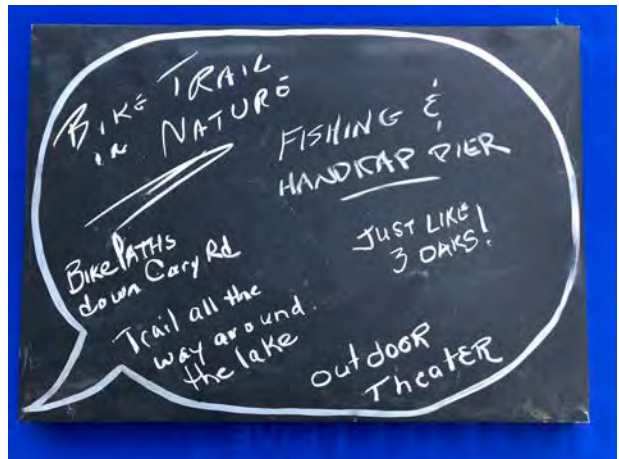 BIKE TRAIL
in NATURE
FISHING &
HANDKAP PIER
JUST LIKE
3 OAKS!
BIKE PATHS
down Cary Rd
Trail all the
way around
the lake
OutdOOR
TheatER